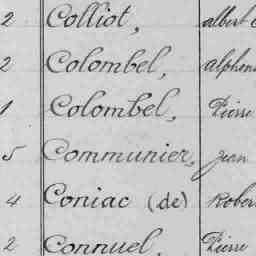 2 Colliot, albert
2 Colombel,
1 Colombel, Pierre
5 Communier, Jean
4 Coniac (de)
2 Connuel, Pierre